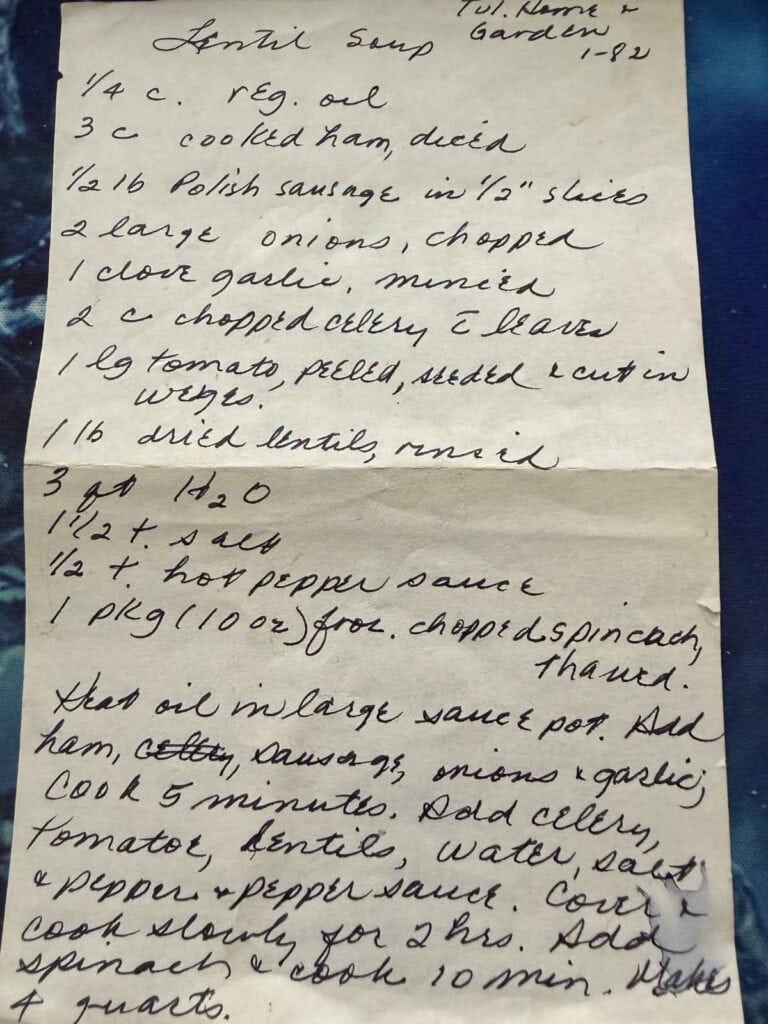 Lentil Soup
Tul. Home &
Garden
1-82
1/4 c. reg. oil
3 c cooked ham, diced
1/2 lb Polish sausage in 1/2" slices
2 large onions, chopped
1 clove garlic, minced
2 c chopped celery c̄ leaves
1 lg tomato, peeled, seeded & cut in
weges.
1 lb dried lentils, rinsed
3 qt H2O
1 1/2 t. salt
1/2 t. hot pepper sauce
1 pkg (10 oz) froz. chopped spinach,
thawed.
Heat oil in large sauce pot. Add
ham, celery, sausage, onions & garlic;
Cook 5 minutes. Add celery,
tomatoe, lentils, water, salt
& pepper & pepper sauce. Cover &
cook slowly for 2 hrs. Add
spinach & cook 10 min. Makes
4 quarts.